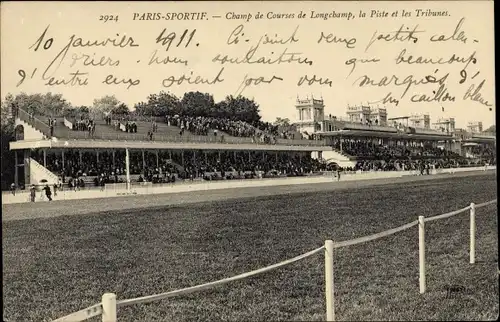 2924 PARIS-SPORTIF. — Champ de Courses de Longchamp, la Piste et les Tribunes.
10 Janvier 1911. — Ci-joint deux petits calen-
driers. Nous souhaitons que beaucoup d'
entre eux soient par vous marqués d'
un caillou blanc